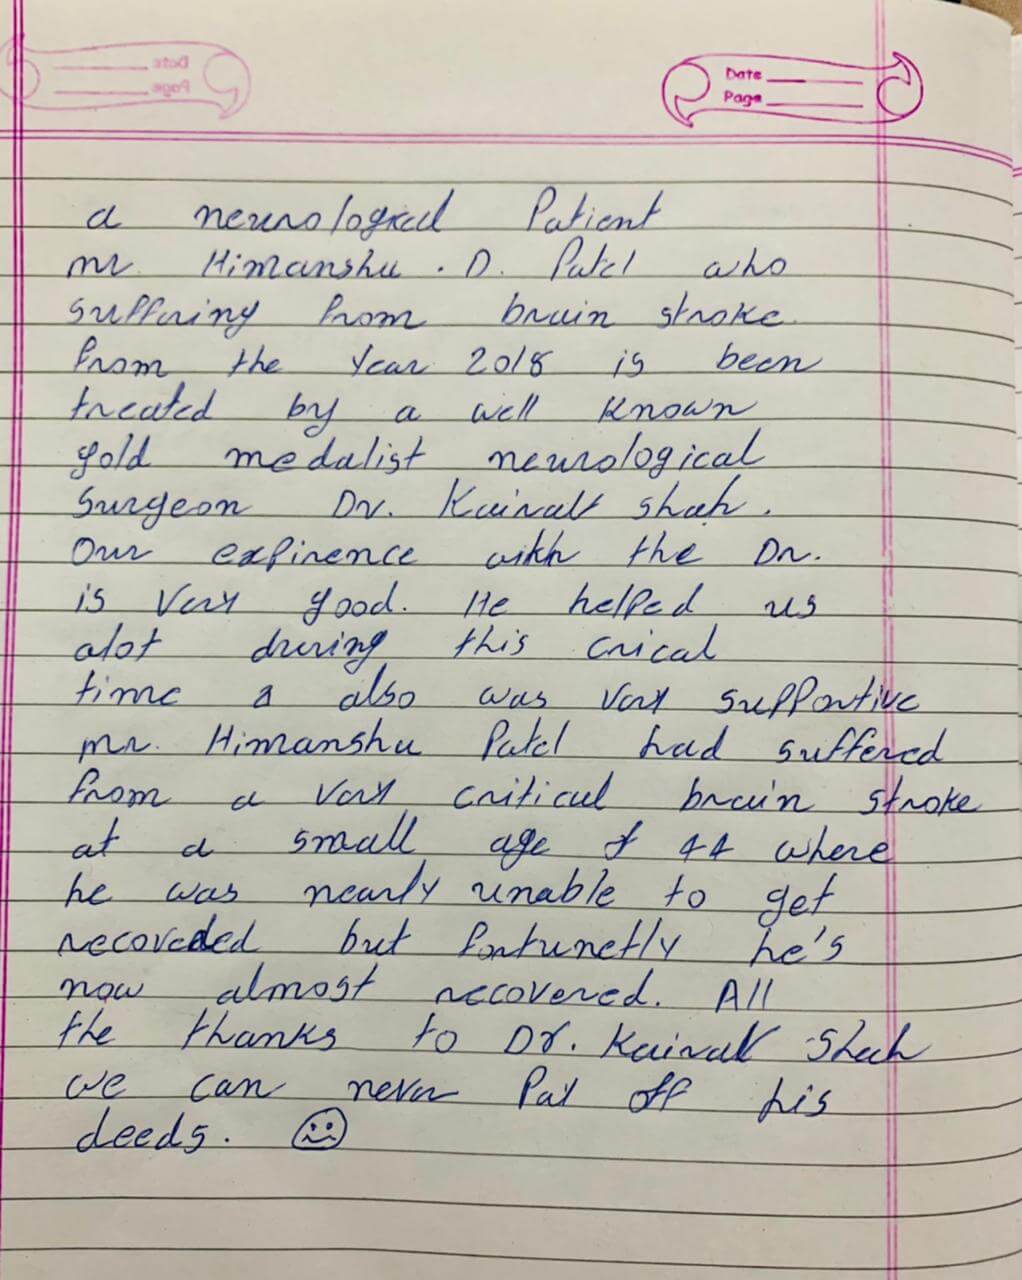 Date
Page
a neurological Patient
mr. Himanshu . D. Patel who
suffering from brain stroke.
from the year 2018 is been
treated by a well known
gold medalist neurological
Surgeon Dr. Kaivalt Shah.
Our expirence with the Dr.
is very good. He helped us
alot druring this crical
time & also was very supportive
mr. Himanshu Patel had suffered
from a very critical brain stroke
at a small age of 44 where
he was nearly unable to get
recoveded but fortunetly he's
now almost recovered. All
the thanks to Dr. Kaivalt Shah
we can never pay off his
deeds. ☺